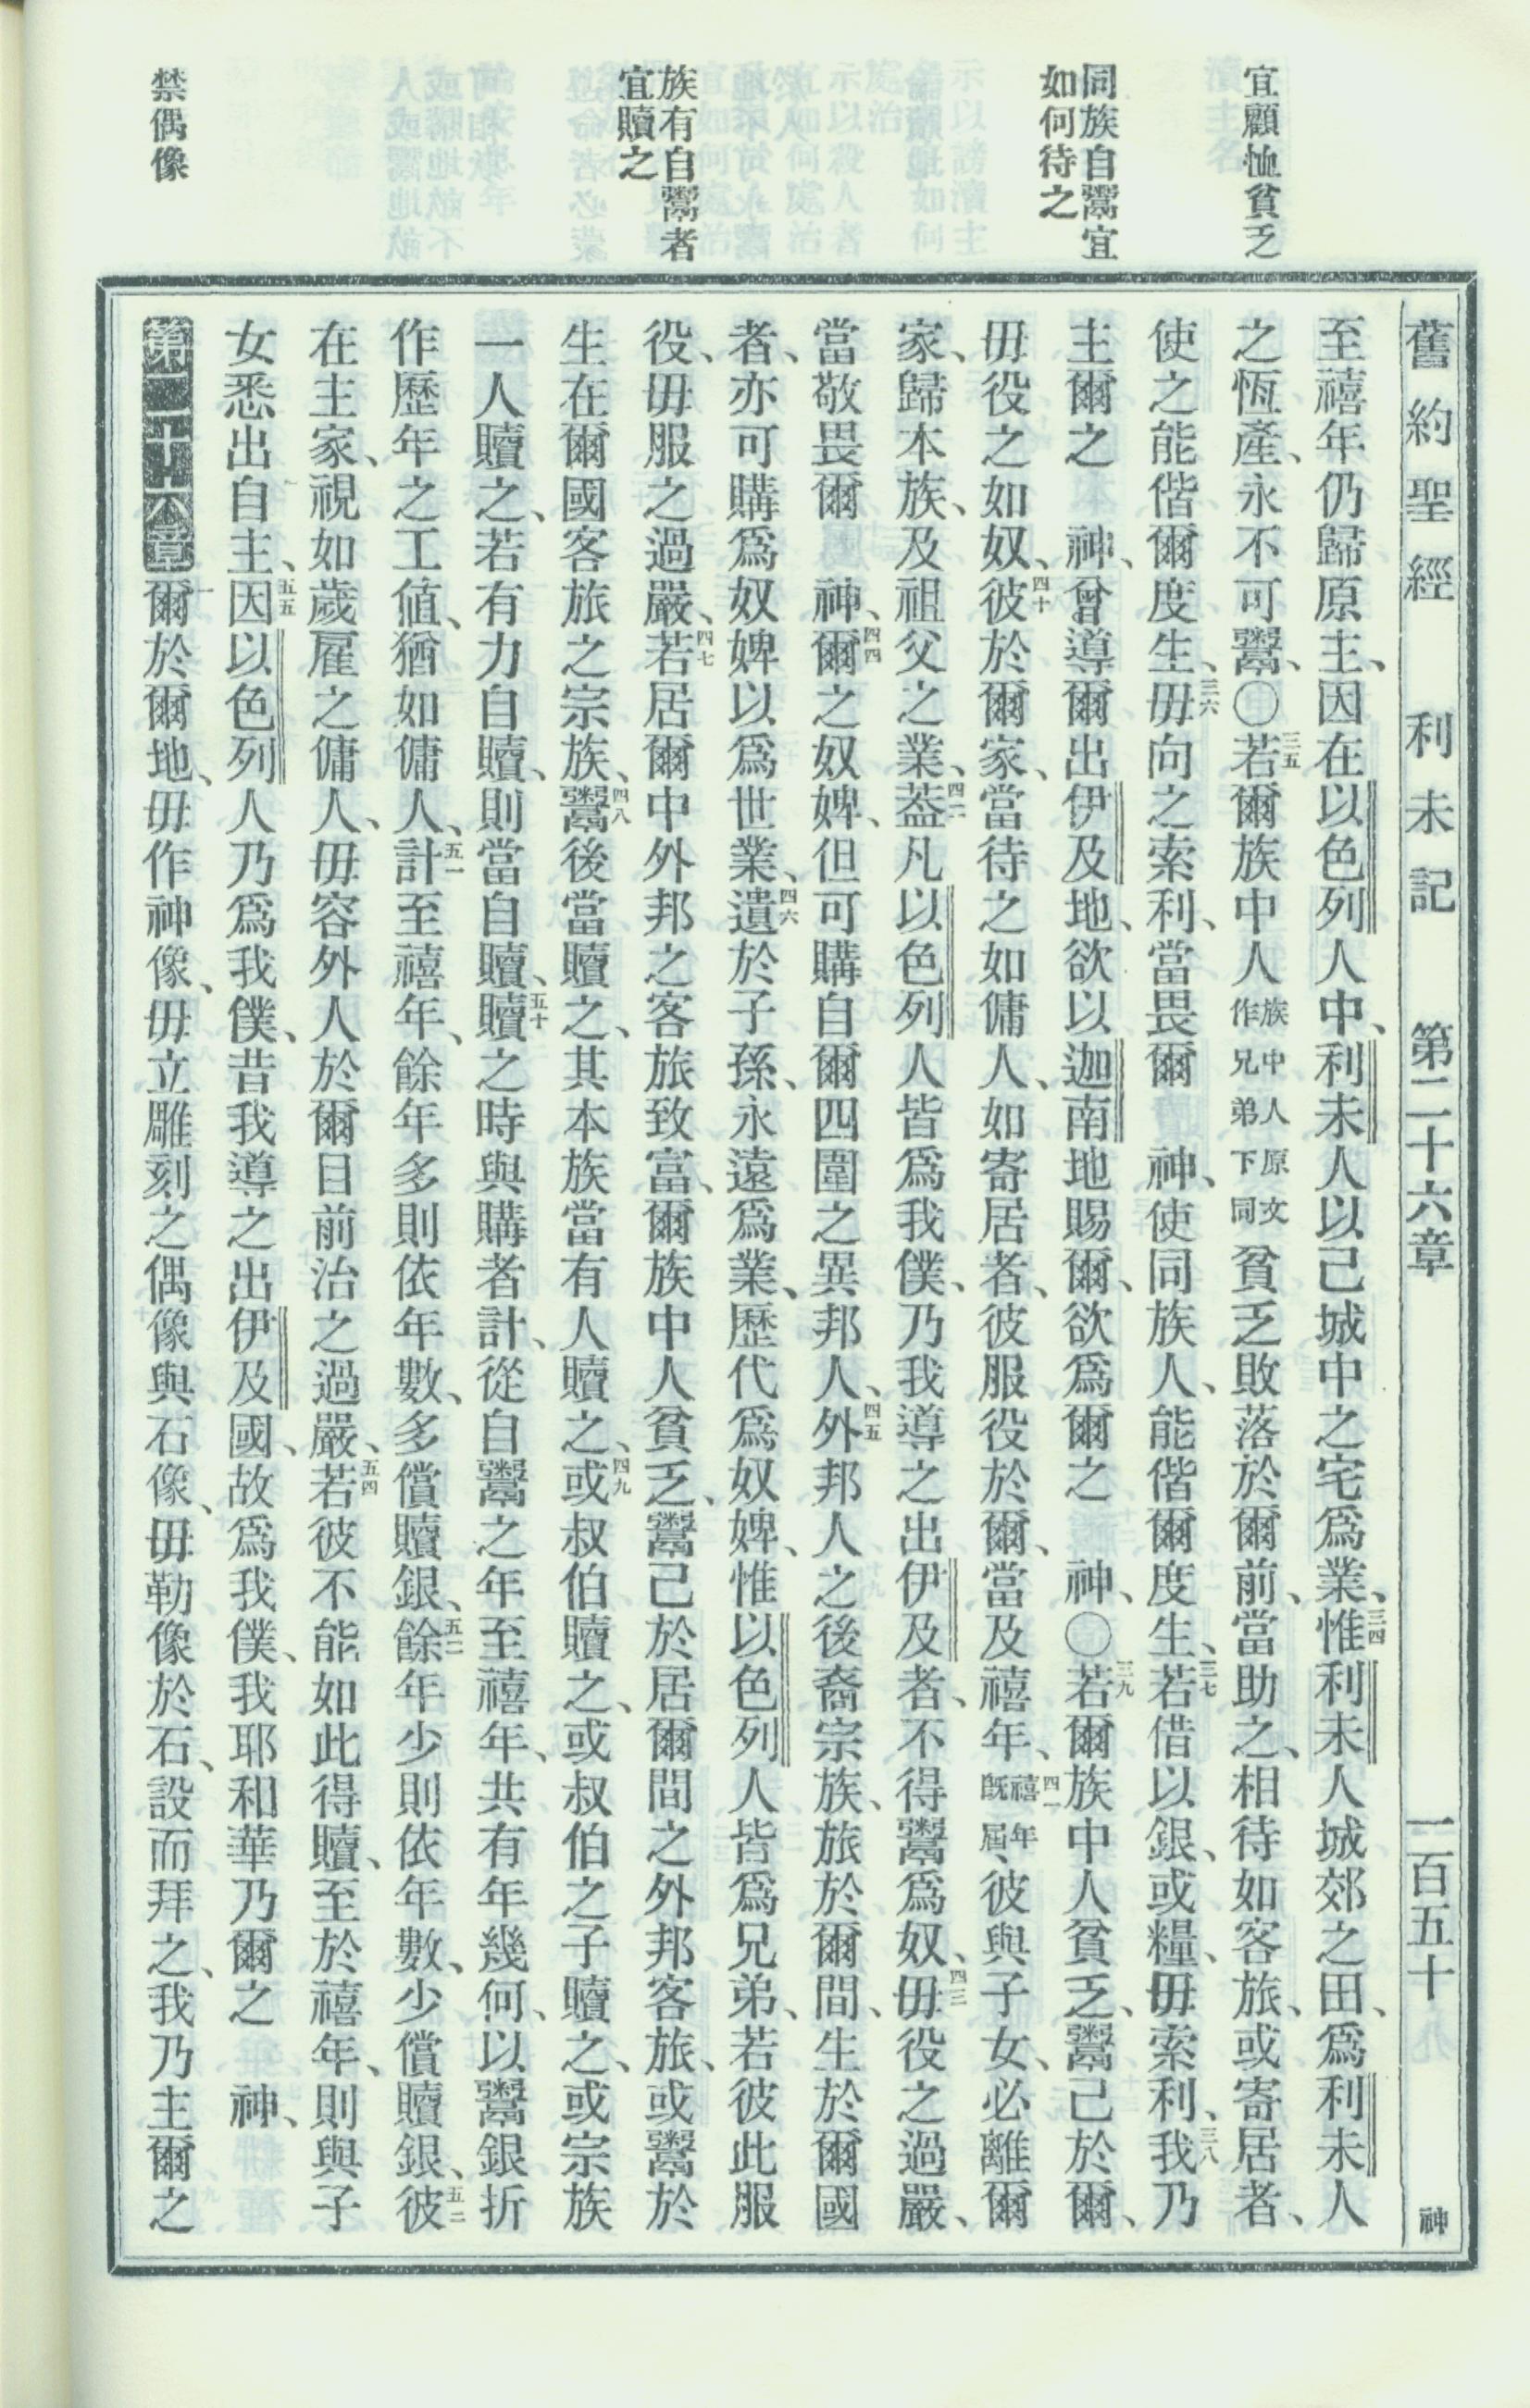 宜顧恤貧乏
同族自鬻宜
如何待之
族有自鬻者
宜贖之
禁偶像
舊約聖經 利未記 第二十六章 一百五十 神
至禧年仍歸原主、因在以色列人中、利未人以己城中之宅爲業、三四惟利未人城郊之田、爲利未人
之恆產、永不可鬻、〇三五若爾族中人族中人原文作兄弟下同貧乏敗落於爾前、當助之、相待如客旅、或寄居者、
使之能偕爾度生、三六毋向之索利、當畏爾 神、使同族人、能偕爾度生、三七若借以銀、或糧、毋索利、三八我乃
主爾之 神、曾導爾出伊及地、欲以迦南地賜爾、欲爲爾之 神、〇三九若爾族中人貧乏、鬻己於爾、
毋役之如奴、四十彼於爾家、當待之如傭人、如寄居者、彼服役於爾、當及禧年、四一禧年既屆、彼與子女、必離爾
家、歸本族、及祖父之業、四二蓋凡以色列人皆爲我僕、乃我導之出伊及者、不得鬻爲奴、四三毋役之過嚴、
當敬畏爾 神、四四爾之奴婢、但可購自爾四圍之異邦人、四五外邦人之後裔宗族、旅於爾間、生於爾國
者、亦可購爲奴婢以爲世業、四六遺於子孫、永遠爲業、歷代爲奴婢、惟以色列人皆爲兄弟、若彼此服
役、毋服之過嚴、四七若居爾中外邦之客旅致富、爾族中人貧乏、鬻己於居爾間之外邦客旅、或鬻於
生在爾國客旅之宗族、四八鬻後當贖之、其本族當有人贖之、四九或叔伯贖之、或叔伯之子贖之、或宗族
一人贖之、若有力自贖、則當自贖、五十贖之時與購者計、從自鬻之年至禧年、共有年幾何、以鬻銀折
作歷年之工値、猶如傭人、五一計至禧年、餘年多則依年數、多償贖銀、五二餘年少則依年數、少償贖銀、五三彼
在主家、視如歲雇之傭人、毋容外人於爾目前治之過嚴、五四若彼不能如此得贖、至於禧年、則與子
女悉出自主、五五因以色列人乃爲我僕、昔我導之出伊及國、故爲我僕、我耶和華乃爾之 神、
第二十六章一爾於爾地、毋作神像、毋立雕刻之偶像與石像、毋勒像於石、設而拜之、我乃主爾之